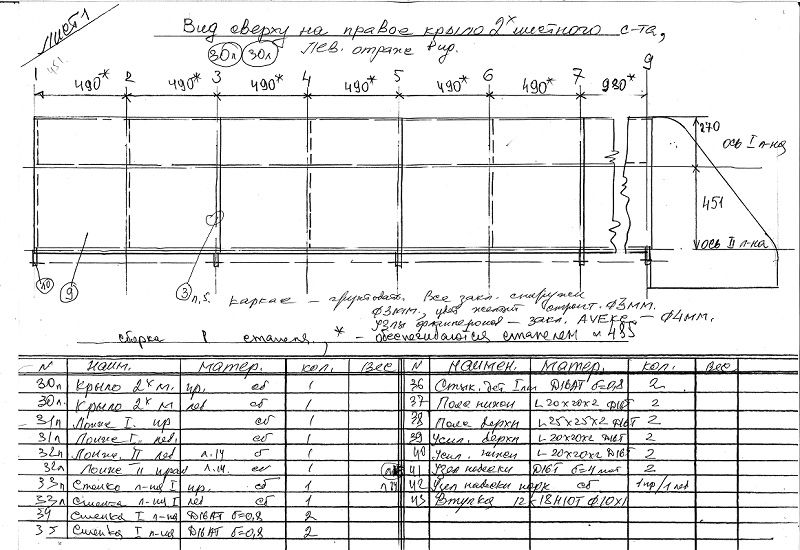 лист 1
Вид сверху на правое крыло 2х местного с-та,
30п 30л Лев. отраже вид.
451
1 2 3 4 5 6 7 9
490* 490* 490* 490* 490* 490* 980*
270
ось I л-на
451
ось II л-на
10 9 3 л.5.
каркас – грунтовать. Все закл. снаружи
ф3мм, ф3мм.
Узлы – закл. AVEKC – ф4мм.
сборка в стапеле, * – обеспечиваются стапелем и 435
N наим. матер. кол. Вес N Наимен. матер. кол. Вес
30п Крыло 2х м. пр. сб 1
36 Стык. I л-на Д16АТ б=0,8 2
30л. Крыло 2х м лев сб 1
37 Полка нижн L 20x20x2 Д16Т 2
31п I. пр сб 1
38 Полка верхн L25x25x2 Д16Т 2
31л I. лев. сб 1
39 Усил. верхн L-20x20x2 Д16Т 2
32л II лев л.14 сб 1
40 Усил. нижн L-20x20x2 Д16Т 2
32п II прав л.14. сб 1
41 Узел навески Д16Т б=4 2
33п Стенка л-на I пр. сб 1
л.14 42 Узел навески сб 1пр/1лев
33л Стенка л-на I лев сб 1
43 Втулка 12х18Н10Т ф10х1
34 Стенка I л-на Д16АТ б=0,8 2
35 Стенка I л-на Д16АТ б=0,8 2